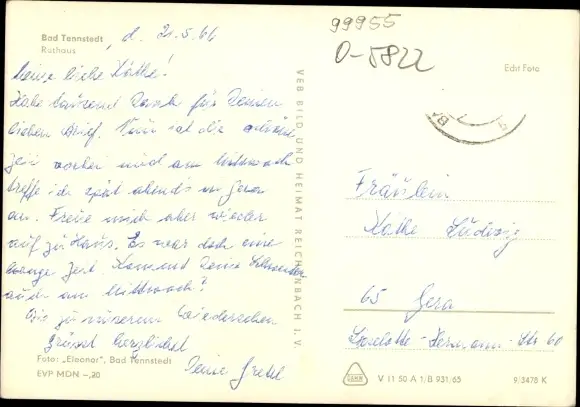 Bad Tennstedt, d. 21.5.66
Rathaus
Meine liebe Käthe!
Habe tausend Dank für Deinen
lieben Brief. Nun ist die schöne
Zeit vorbei und am Mittwoch
treffe ich spät abends in Gera
an. Freue mich aber wieder
auf zu Haus. Es war doch eine
lange Zeit. Kommt Deine Schwester
auch am Mittwoch?
Bis zu unserem Wiedersehen
grüsst herzlichst
Deine Gretel
Foto: „Eleonor", Bad Tennstedt
EVP MDN –,20
VEB BILD UND HEIMAT REICHENBACH I. V.
99955
O-5822
Echt Foto
Fräulein
Käthe Ludwig
65 Gera
Liselotte-Herrmann-Str 60
V 11 50 A 1/B 931/65
9/3478 K